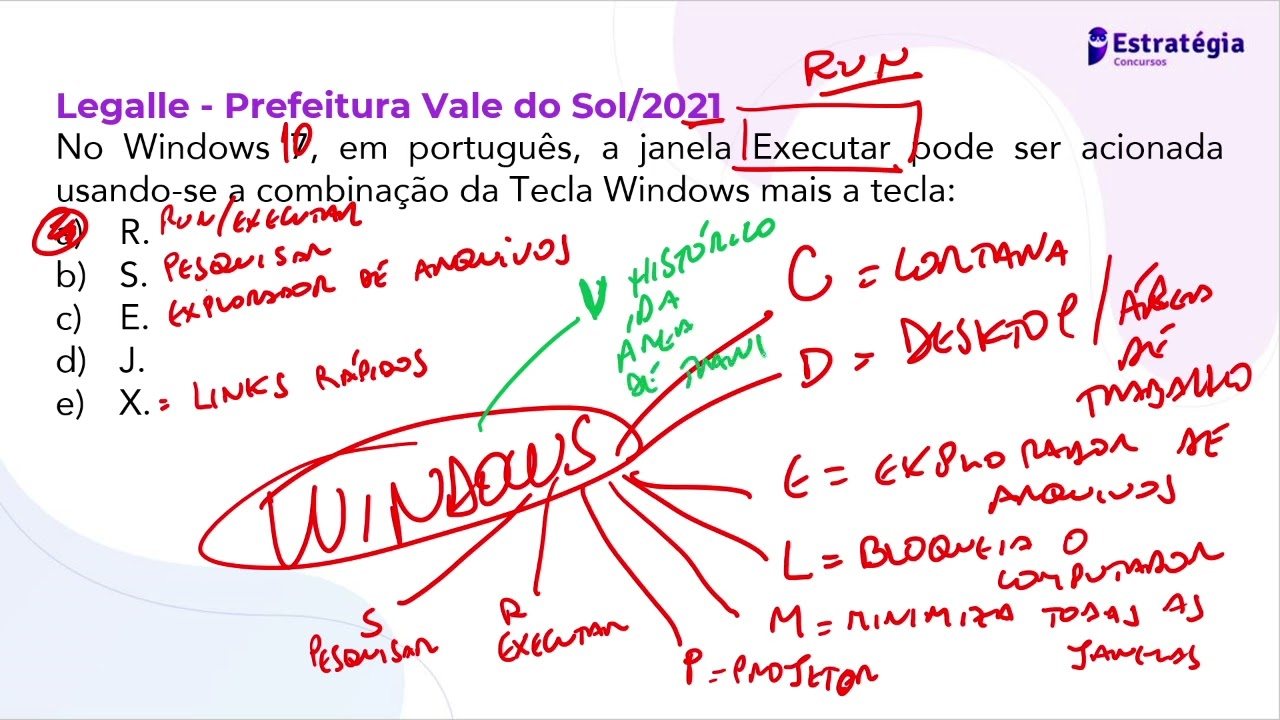 Estratégia
Concursos
RUN
Legalle - Prefeitura Vale do Sol/2021
No Windows 10, em português, a janela Executar pode ser acionada
usando-se a combinação da Tecla Windows mais a tecla:
a) R. RUN/EXECUTAR
b) S. PESQUISAR
c) E. EXPLORADOR DE ARQUIVOS
d) J.
e) X. = LINKS RÁPIDOS
V HISTÓRICO
DA
ÁREA
DE TRANS
C = CORTANA
D = DESKTOP / ÁREA
DE
TRABALHO
WINDOWS
E = EXPLORADOR DE
ARQUIVOS
L = BLOQUEIA O
COMPUTADOR
M = MINIMIZA TODAS AS
JANELAS
P = PROJETOR
R
EXECUTAR
S
PESQUISAR